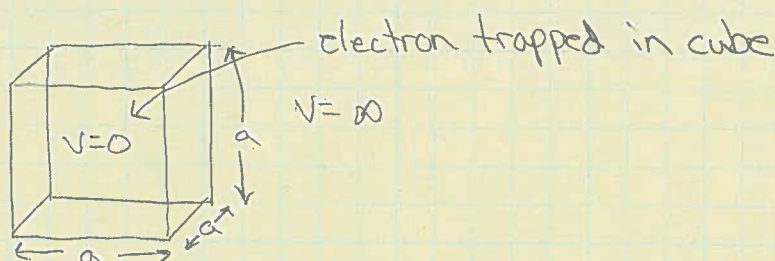 electron trapped in cube
V=∞
V=0
a
a
a